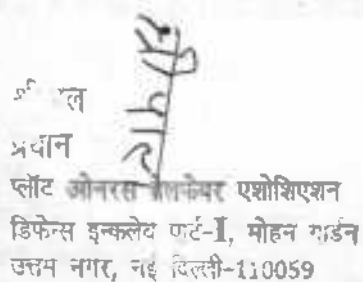 प्रधान
प्लॉट ओनरस वेलफेयर एशोशिएशन
डिफेन्स इन्कलेव पार्ट-I, मोहन गार्डन
उत्तम नगर, नई दिल्ली-110059